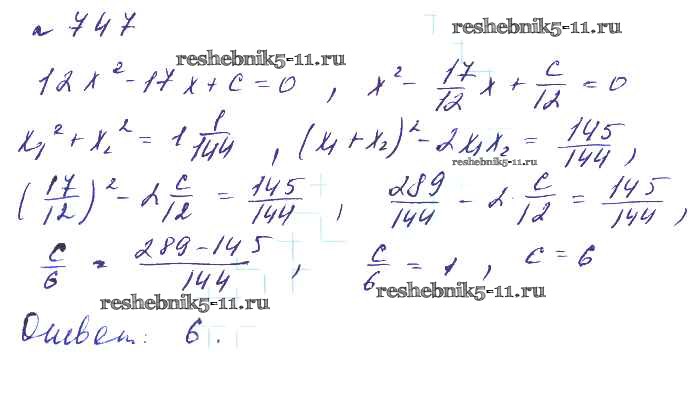 № 747
reshebnik5-11.ru
reshebnik5-11.ru
12x² - 17x + c = 0, x² - 17/12 x + c/12 = 0
x₁² + x₂² = 1 1/144, (x₁ + x₂)² - 2x₁x₂ = 145/144,
reshebnik5-11.ru
(17/12)² - 2 c/12 = 145/144, 289/144 - 2 · c/12 = 145/144,
c/6 = 289-145/144, c/6 = 1, c = 6
reshebnik5-11.ru
reshebnik5-11.ru
Ответ: 6.